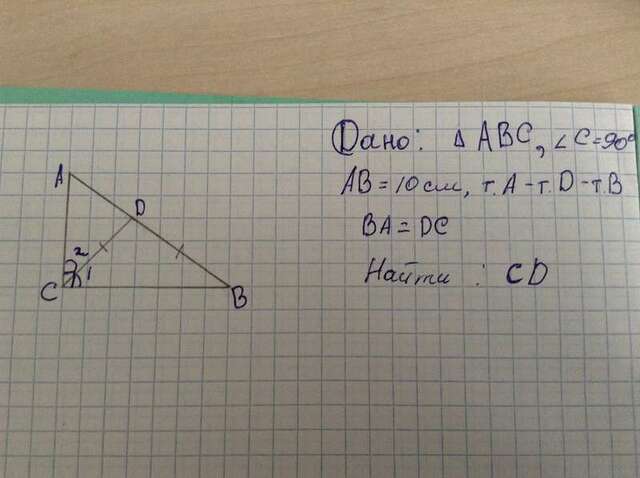 Дано: △ ABC, ∠C=90°
AB=10 см, т.A-т.D-т.B
BA=DC
Найти: CD
A
D
2
1
C
B